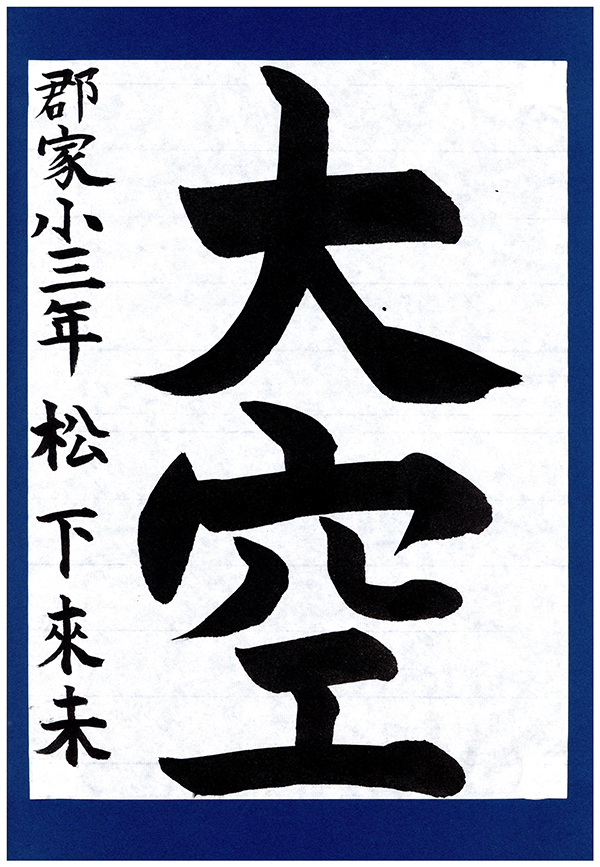 大空
郡家小三年 松下來未